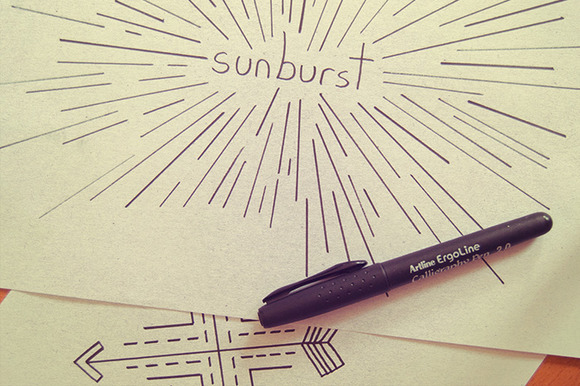 sunburst
Artline ErgoLine
Calligraphy Pen 2.0